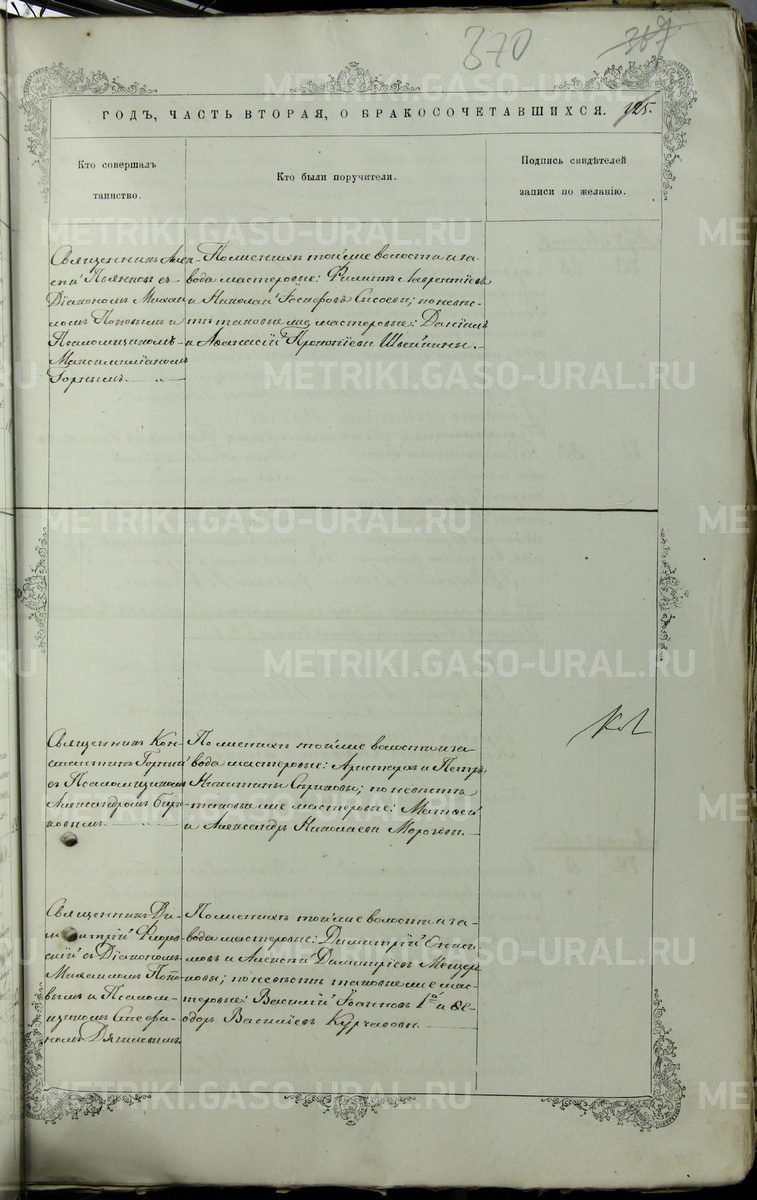 370
367
ГОДЪ, ЧАСТЬ ВТОРАЯ, О БРАКОСОЧЕТАВШИХСЯ.
125.
Кто совершалъ
таинство.
Кто были поручители.
Подпись свидѣтелей
записи по желанію.
Священникъ Алек-
сѣй съ
Діакономъ Михаи
ломъ Поповымъ и
Псаломщикомъ
Максимиліаномъ
Горнымъ.
По женихѣ той же волости и за-
вода мастеровые: Филипъ Лаврентіевъ
и Николай Іосифовъ Сысоевы; по невѣс-
тѣ таковые же мастеровые: Даніилъ
и Аѳанасій Прокопіевы Швейкины.
Священникъ Кон-
стантинъ Горный
съ Псаломщикомъ
Александромъ Бирю
ковымъ.
По женихѣ той же волости и за-
вода мастеровые: Аристархъ и Петръ
Никитины; по невѣстѣ
таковые же мастеровые: Матвей
и Александръ Николаевы Морозовы.
Священникъ Ди-
митрій Флоров
скій съ Діакономъ
Михаиломъ Попо
вымъ и Псалом-
щикомъ Стефа-
номъ Дягилевымъ
По женихѣ той же волости и за-
вода мастеровые: Димитрій Ониси-
мовъ и Алексѣй Димитріевъ Мещер
ковы; по невѣстѣ таковые же мас-
теровые: Василій Іоанновъ 1й и Ѳе-
одоръ Василіевъ Курчавовы.
METRIKI.GASO-URAL.RU